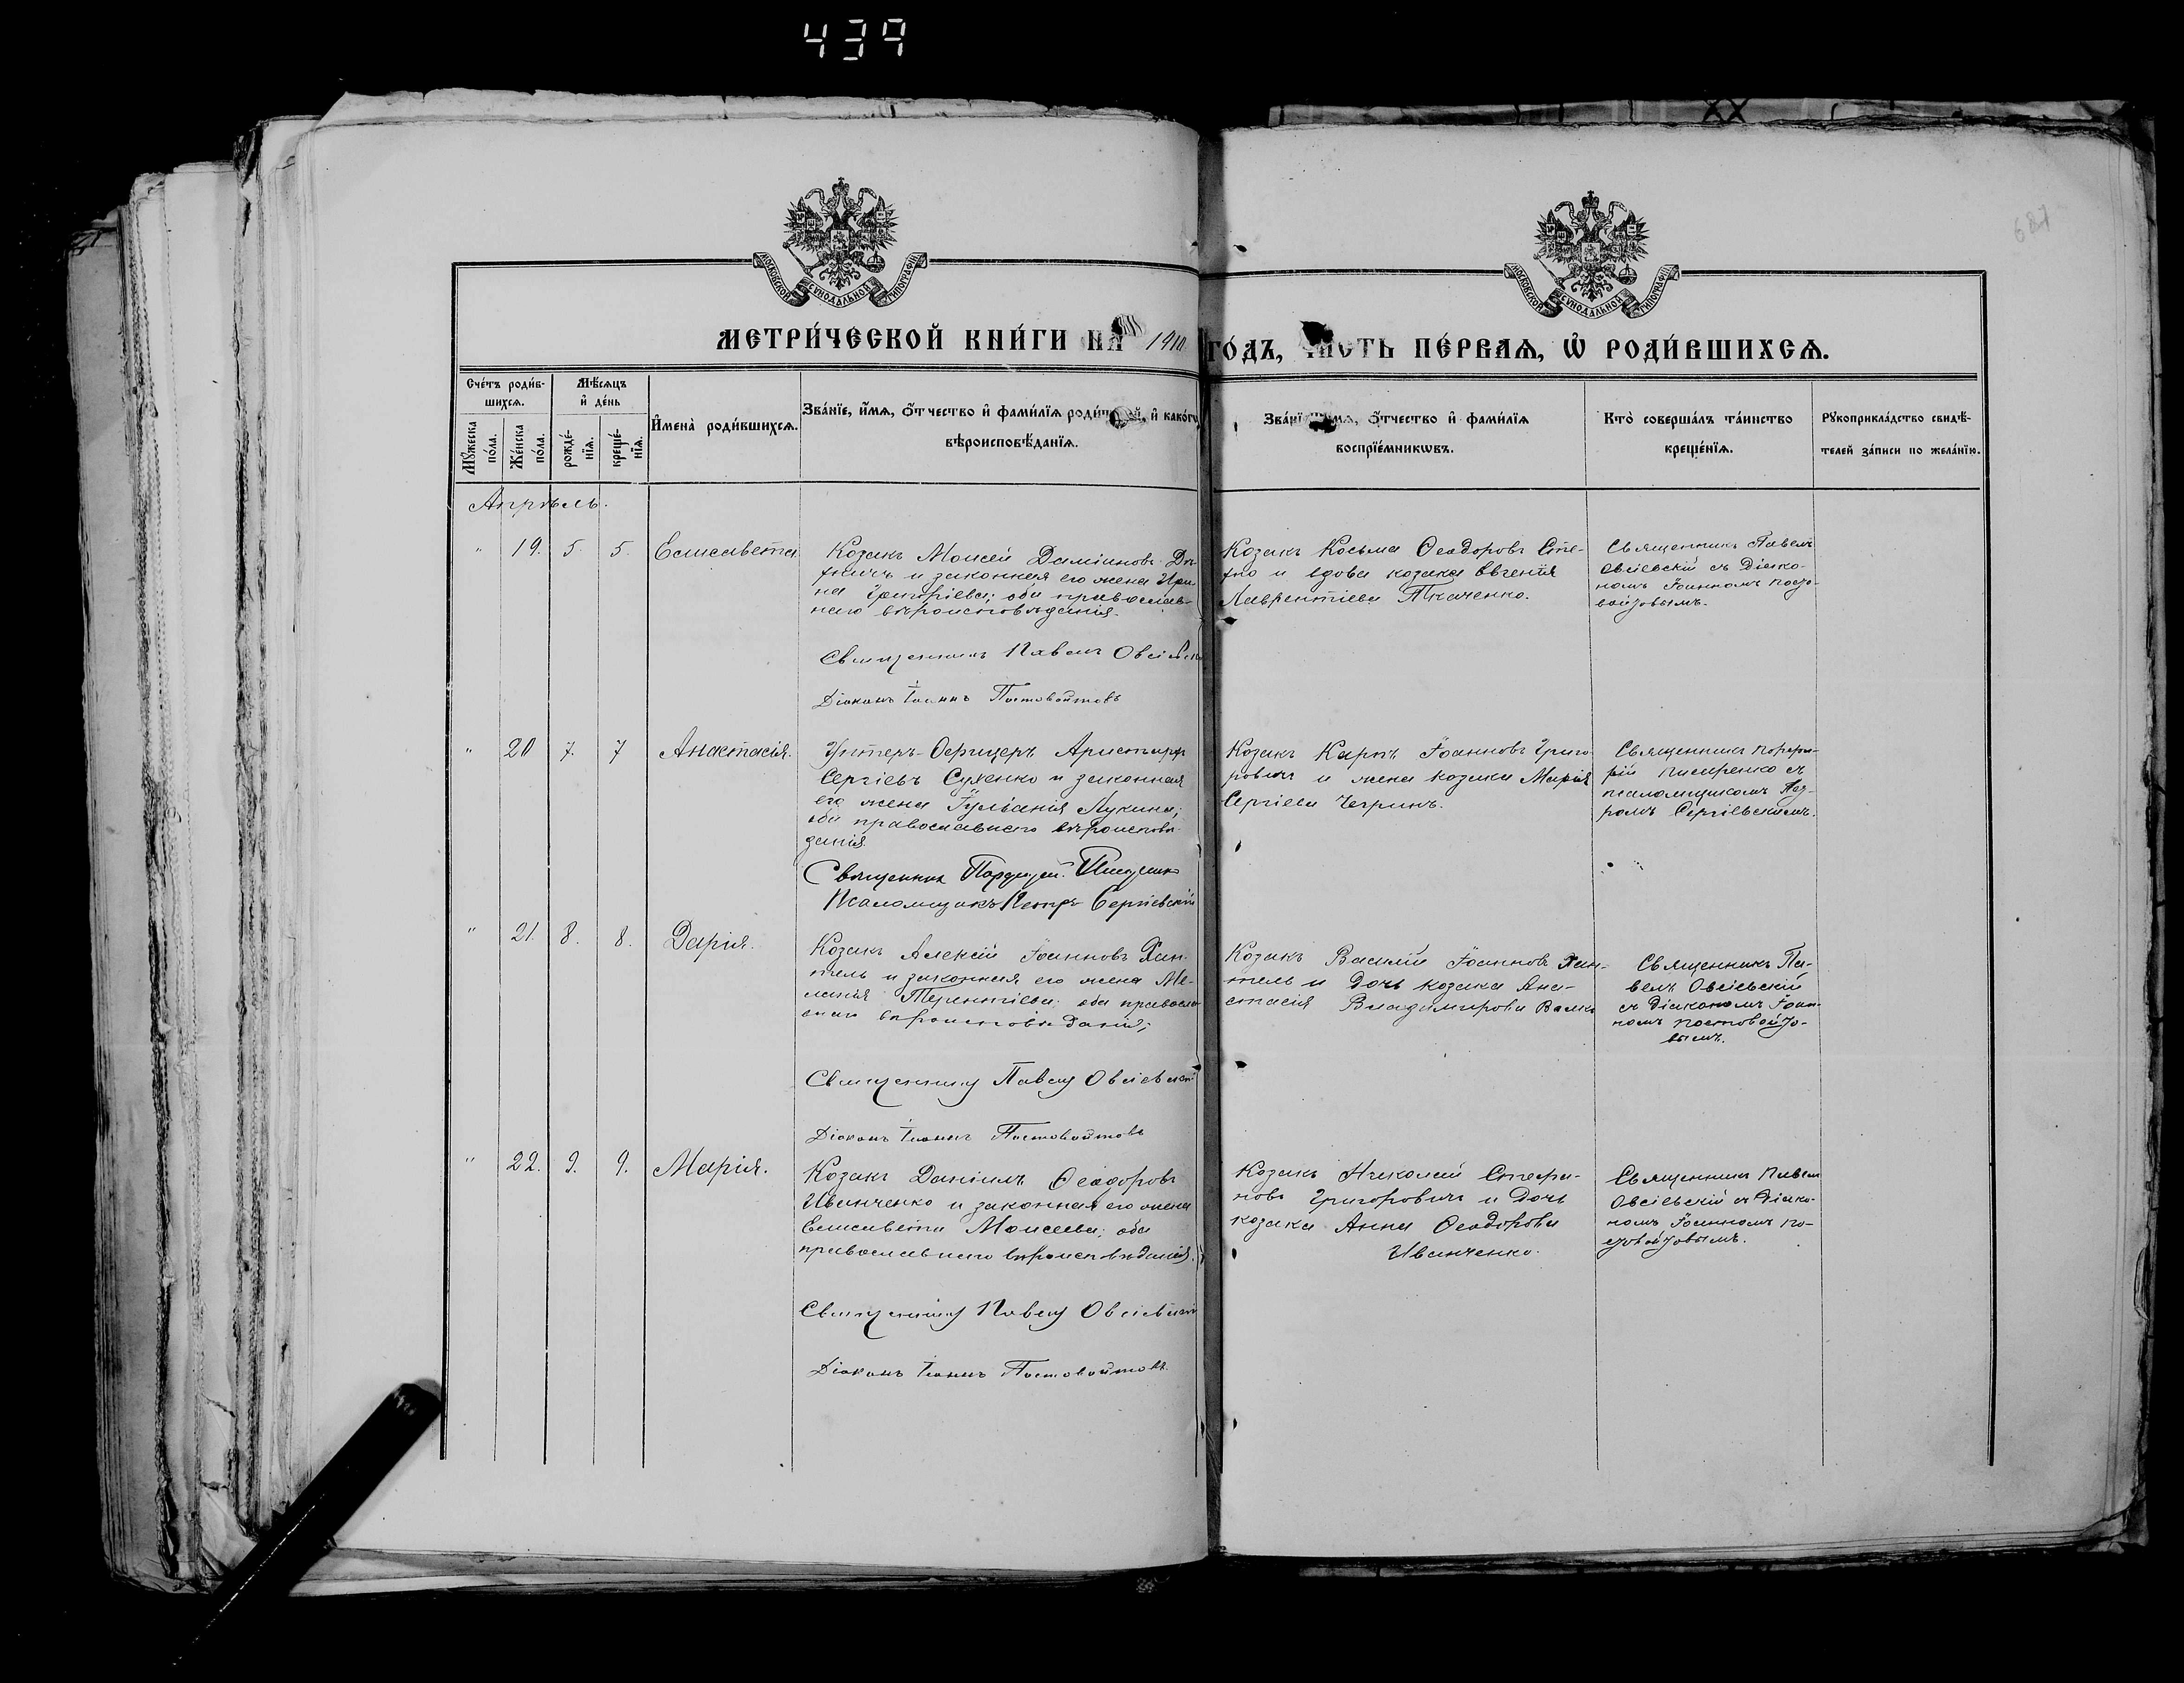 439
687
МОСКОВСКОЙ СѴНОДАЛЬНОЙ ТИПОГРАФІИ
МОСКОВСКОЙ СѴНОДАЛЬНОЙ ТИПОГРАФІИ
МЕТРИ́ЧЕСКОЙ КНИ́ГИ НА 1910 ГО́ДЪ, ЧАСТЬ ПЕ́РВАѦ, Ѡ҆ РОДИ́ВШИХСѦ.
Сче́тъ роди́в-
шихсѧ.
Мѣ́сѧцъ
и҆ де́нь
Мꙋ́жеска
по́ла.
Же́нска
по́ла.
рожде́-
нїѧ.
креще́-
нїѧ.
И҆мена̀ роди́вшихсѧ.
Зва́нїе, и҆́мѧ, ѻ҆́тчество и҆ фамі́лїѧ роди́телей, и҆ како́гѡ
вѣроисповѣ́данїѧ.
Зва́нїе, и҆́мѧ, ѻ҆́тчество и҆ фамі́лїѧ
воспрїе́мникѡвъ.
Кто̀ соверша́лъ та́инство
креще́нїѧ.
Рꙋкоприкла́дство свидѣ́-
телей за́писи по жела́нїю.
Апрѣль.
" 19. 5. 5. Елисавета.
Козакъ Моисей Даміановъ
и законная его жена Ири-
на Григоріева; оба православ-
наго вѣроисповѣданія.
Священникъ Павелъ Овсіевскі
Діаконъ Іоаннъ Постовойтовъ
Козакъ Косьма Ѳеодоровъ
и вдова козака Евгенія
Лаврентіева Ткаченко.
Священникъ Павелъ
Овсіевскій съ Діако-
номъ Іоанномъ Посто-
войтовымъ.
" 20 7. 7 Анастасія.
Унтеръ-Офицеръ Аристархъ
Сергіевъ Сухенко и законная
его жена Іуліанія Лукина;
оба православнаго вѣроисповѣ-
данія.
Священникъ Порфирій Писаренко
Псаломщикъ Петръ Сергіевскій
Козакъ Карпъ Іоанновъ Григо-
ровичъ и жена козака Марія
Сергіева Чегринъ.
Священникъ Порфи-
рій Писаренко съ
псаломщикомъ Пет-
ромъ Сергіевскимъ.
" 21. 8. 8. Дарія.
Козакъ Алексій Іоанновъ Хан-
тель и законная его жена Ме-
ланія Терентіева; оба православ
наго вѣроисповѣданія;
Священникъ Павелъ Овсіевскі
Діаконъ Іоаннъ Постовойтовъ
Козакъ Василій Іоанновъ Хан-
тель и дочь козака Ана-
стасія Владимирова
Священникъ Па-
велъ Овсіевскій
съ Діакономъ Іоан-
номъ Постовойто-
вымъ.
" 22. 9. 9. Марія.
Козакъ Даніилъ Ѳеодоровъ
Иванченко и законная его жена
Елисавета Моисеева; оба
православнаго вѣроисповѣданія.
Священникъ Павелъ Овсіевскі
Діаконъ Іоаннъ Постовойтовъ.
Козакъ Николай Стефа-
новъ Григоровичъ и дочь
козака Анна Ѳеодорова
Иванченко.
Священникъ Павелъ
Овсіевскій съ Діако-
номъ Іоанномъ По-
стовойтовымъ.